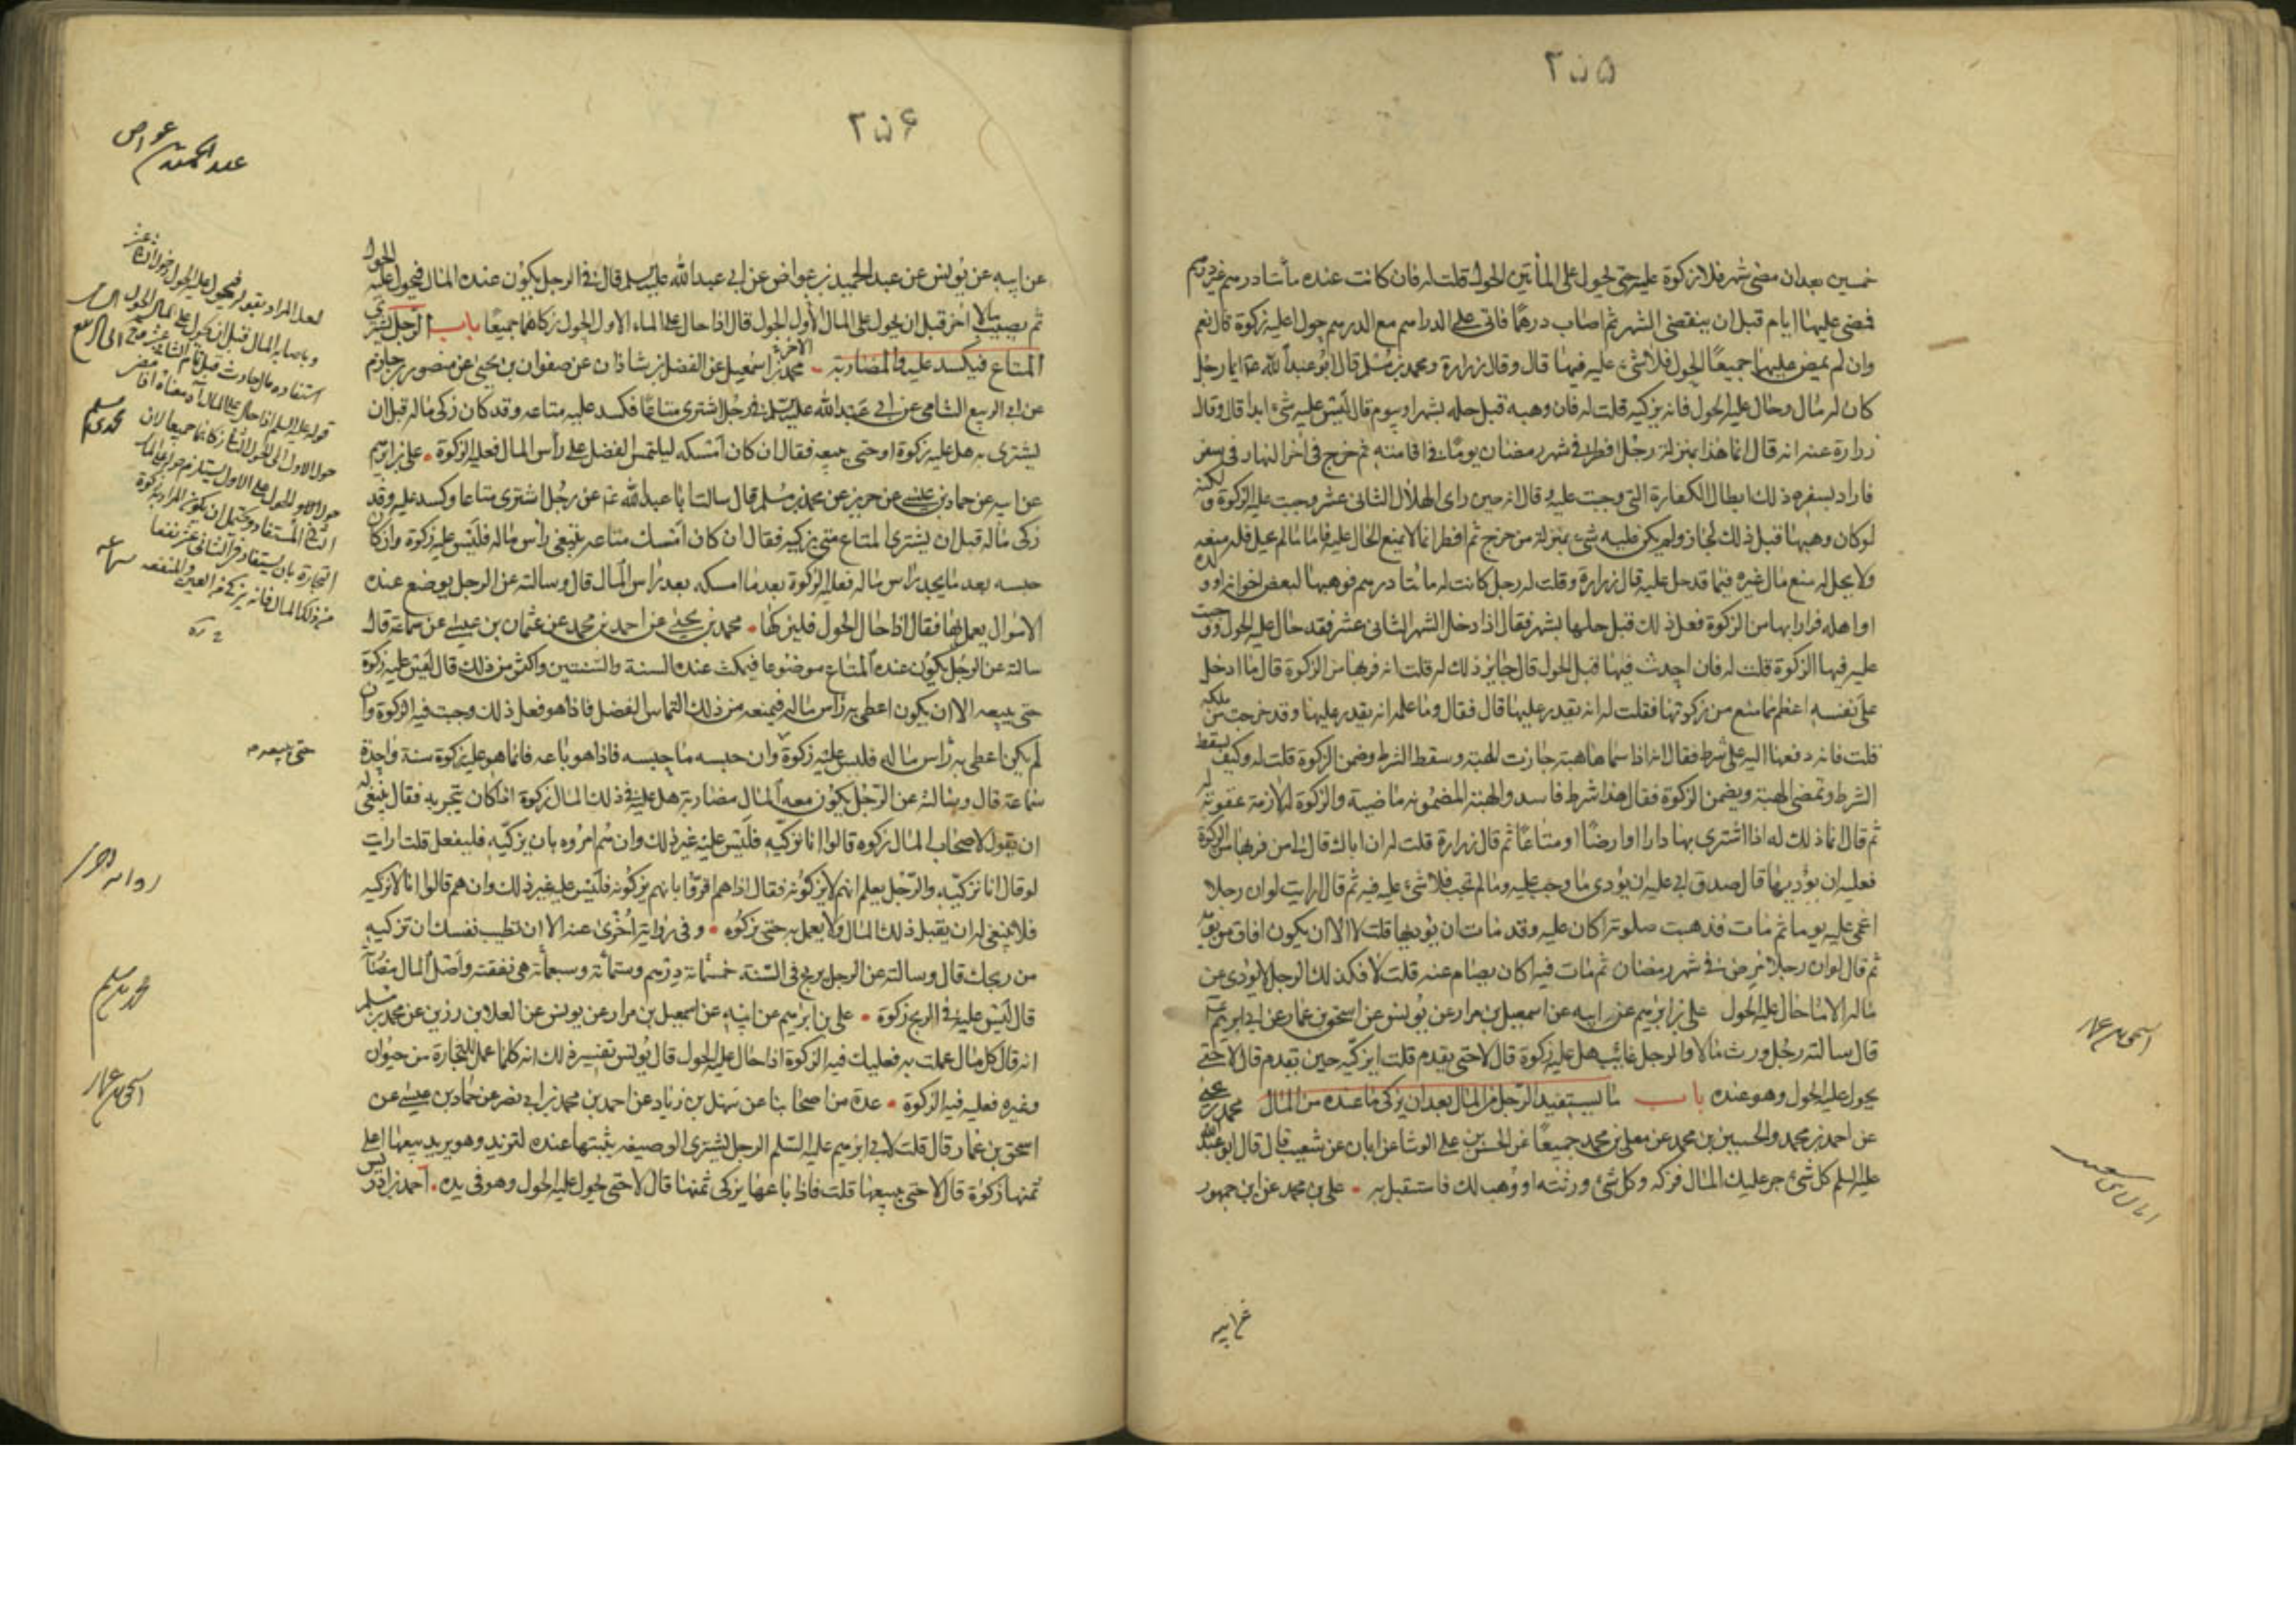 ٢٥٥
خمسين بعد ان مضى شهر فلا زكوة عليه حتى يحول على المأتين الحول قلت له فان كانت عنده مأتا درهم غير درهم
فمضى عليها ايام قبل ان ينقضى الشهر ثم اصاب درهما فاتى على الدراهم مع الدرهم حول اعليه زكوة قال نعم
وان لم يمض عليها جميعًا الحول فلا شئ عليه فيها قال وقال زرارة ومحمد بن مسلم قال ابو عبد الله ع ايما رجل
كان له مال وحال عليه الحول فانه يزكيه قلت له فان وهبه قبل حله بشهر او بيوم قال ليس عليه شئ ابدا قال وقال
زرارة عنه انه قال انما هذا بمنزلة رجل افطر فى شهر رمضان يومًا فى اقامته ثم خرج فى اخر النهار فى سفر
فاراد بسفره ذلك ابطال الكفارة التى وجبت عليه وقال انه حين راى الهلال الثانى عشر وجبت عليه الزكوة ولكنه
لو كان وهبها قبل ذلك لجاز ولم يكن عليه شئ بمنزلة من خرج ثم افطر انما لا يمنع الحال عليه فاما ما لم يحل فله منعه
ولا يحل له منع مال غيره فيما قد حل عليه قال زرارة وقلت له رجل كانت له مائتا درهم فوهبها لبعض اخوانه او ولده
او اهله فرارا بها من الزكوة فعل ذلك قبل حلها بشهر فقال اذا دخل الشهر الثانى عشر فقد حال عليه الحول ووجبت
عليه فيها الزكوة قلت له فان احدث فيها قبل الحول قال جايز ذلك له قلت انه فر بها من الزكوة قال ما ادخل
على نفسه اعظم مما منع من زكوتها فقلت له انه يقدر عليها قال فقال وما علمه انه يقدر عليها وقد خرجت من ملكه
قلت فانه دفعها اليه على شرط فقال انه اذا سماها هبة جازت الهبة وسقط الشرط وضمن الزكوة قلت له وكيف يسقط
الشرط وتمضى الهبة ويضمن الزكوة فقال هذا شرط فاسد والهبة المضمونه ماضية والزكوة له لازمة عقوبة له
ثم قال انما ذلك له اذا اشترى بها دارا او ارضًا او متاعًا ثم قال زرارة قلت له ان اباك قال لى من فر بها من الزكوة
فعليه ان يؤديها قال صدق ابى عليه ان يؤدى ما وجب عليه وما لم تجب فلا شئ عليه فيه ثم قال ارايت لو ان رجلا
اغمى عليه يوما ثم مات فذهبت صلوته اكان عليه وقد مات ان يؤديها قلت لا الا ان يكون افاق من يومه
ثم قال لو ان رجلا مرض فى شهر رمضان ثم مات فيه اكان يصام عنه قلت لا فكذلك الرجل لا يؤدى عن
ماله الا ما حال عليه الحول على بن ابرهيم عن ابيه عن اسمعيل بن مرار عن يونس عن اسحق بن عمار عن ابى ابرهيم ع
قال سالته رجل ورث مالا والرجل غائب هل عليه زكوة قال لا حتى يقدم قلت ايزكيه حين يقدم قال لا حتى
يحول عليه الحول وهو عنده باب ما يستفيد الرجل من المال بعد ان يزكى ما عنده من المال محمد بن يحيى
عن احمد بن محمد والحسين بن محمد عن معلى بن محمد جميعًا عن الحسن بن على الوشا عن ابان عن شعيب قال قال ابو عبد الله
عليه السلم كل شئ جر عليك المال فزكه وكل شئ ورثته او وهب لك فاستقبل به • على بن محمد عن ابن جمهور
عن ابيه
اسحق بن عمار
٢٥٦
عبد الحميد بن عواض
عن ابيه عن يونس عن عبد الحميد بن عواض عن ابى عبد الله عليه السلم قال فى الرجل يكون عنده المال فيحول عليه الحول
ثم يصيب مالا اخر قبل ان يحول على المال الاول الحول قال اذا حال على المال الاول الحول زكاهما جميعًا باب الرجل يشترى
المتاع فيكسد عليه والمضاربة • محمد بن اسمعيل عن الفضل بن شاذان عن صفوان بن يحيى عن منصور بن حازم
عن ابى الربيع الشامى عن ابى عبد الله عليه السلم فى رجل اشترى متاعًا فكسد عليه متاعه وقد كان زكى ماله قبل ان
يشترى به هل عليه زكوة او حتى يبيعه فقال ان كان امسكه ليلتمس الفضل على رأس المال فعليه الزكوة • على بن ابرهيم
عن ابيه عن حماد بن عيسى عن حريز عن محمد بن مسلم قال سالت ابا عبد الله ع عن رجل اشترى متاعا وكسد عليه وقد
زكى ماله قبل ان يشترى المتاع متى يزكيه فقال ان كان امسك متاعه يبتغى رأس ماله فليس عليه زكوة وان كان
حبسه بعد ما يجد رأس ماله فعليه الزكوة بعد ما امسكه بعد رأس المال قال وسالته عن الرجل يوضع عنده
الاموال يعمل بها فقال اذا حال الحول فليزكها • محمد بن يحيى عن احمد بن محمد عن عثمان بن عيسى عن سماعة قال
سالته عن الرجل يكون عنده المتاع موضوعا فيمكث عنده السنة والسنتين واكثر من ذلك قال ليس عليه زكوة
حتى يبيعه الا ان يكون اعطى به رأس ماله فيمنعه من ذلك التماس الفضل فاذا هو فعل ذلك وجبت فيه الزكوة وان
لم يكن اعطى به رأس ماله فليس عليه زكوة وان حبسه ما حبسه فاذا هو باعه فانما هو عليه زكوة سنة واحدة
حتى يبيعه
سماعة قال وسالته عن الرجل يكون معه المال مضاربة هل عليه فى ذلك المال زكوة اذا كان يتجر به فقال ينبغى له
ان يقول لاصحاب المال زكوه قالوا انا نزكيه فليس عليه غير ذلك وان هم امروه بان يزكيه فليفعل قلت ارايت
لو قال انا نزكيه والرجل يعلم انهم لا يزكونه فقال اذا هم اقروا بانهم يزكونه فليس عليه غير ذلك وان هم قالوا انا لا نزكيه
فلا ينبغى له ان يقبل ذلك المال ولا يعمل به حتى يزكوه • وفى رواية اخرى عنه الا ان تطيب نفسك ان تزكيه
من ربحك قال وسالته عن الرجل يربح فى السنة خمسمائة درهم وستمائة وسبعمائة هى نفقته واصل المال مضاربة
قال ليس عليه فى الربح زكوة • على بن ابرهيم عن ابيه عن اسمعيل بن مرار عن يونس عن العلا بن رزين عن محمد بن مسلم
انه قال كل مال عملت به فعليك فيه الزكوة اذا حال عليه الحول قال يونس تفسير ذلك انه كلما عمل للتجارة من حيوان
وغيره فعليه فيه الزكوة • عدة من اصحابنا عن سهل بن زياد عن احمد بن محمد بن ابى نصر عن حماد بن عيسى عن
اسحق بن عمار قال قلت لابى ابرهيم عليه السلم الرجل يشترى الوصيفه يثبتها عنده لتزيد وهو يريد بيعها اعلى
ثمنها زكوة قال لا حتى يبيعها قلت فاذا باعها يزكى ثمنها قال لا حتى يحول عليه الحول وهو فى يده • احمد بن ادريس
محمد بن مسلم
سماعه
محمد بن مسلم
اسحق بن عمار